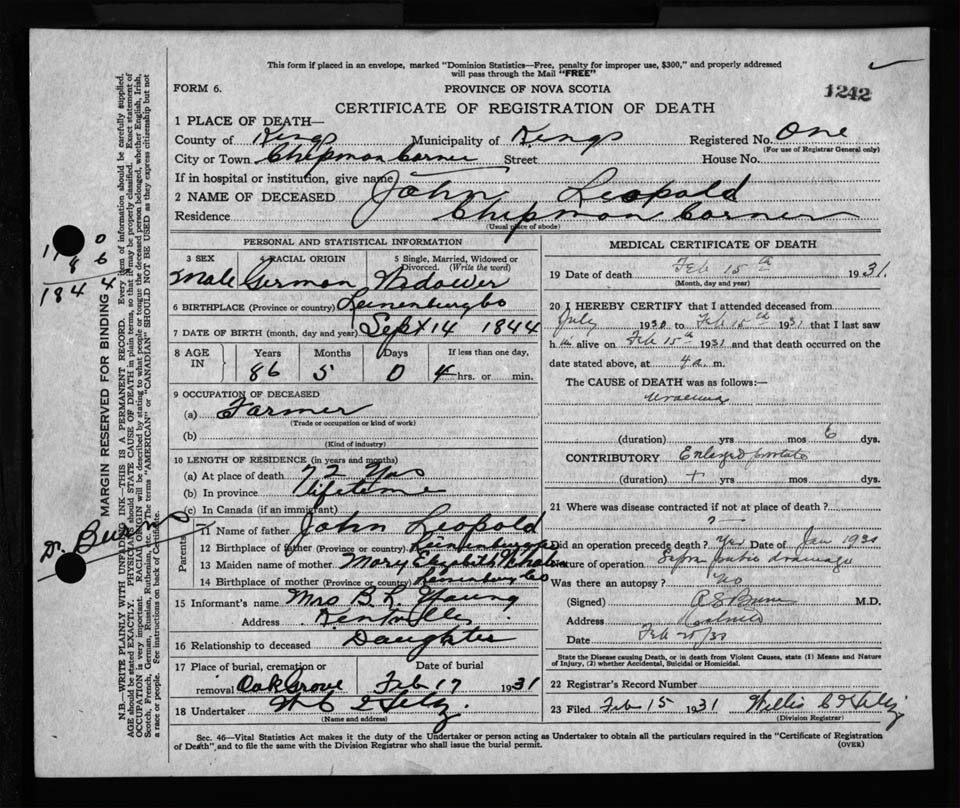 This form if placed in an envelope, marked "Dominion Statistics—Free, penalty for improper use, $300," and properly addressed
will pass through the Mail "FREE"
FORM 6.
PROVINCE OF NOVA SCOTIA
1242
CERTIFICATE OF REGISTRATION OF DEATH
1 PLACE OF DEATH—
County of Kings Municipality of Kings Registered No. One
(For use of Registrar General only)
City or Town Chipman Corner Street House No.
If in hospital or institution, give name
2 NAME OF DECEASED John Leopold
Residence Chipman Corner
(Usual place of abode)
PERSONAL AND STATISTICAL INFORMATION
3 SEX 4 RACIAL ORIGIN 5 Single, Married, Widowed or Divorced. (Write the word)
Male German Widower
6 BIRTHPLACE (Province or country) Lunenburg Co
7 DATE OF BIRTH (month, day and year) Sept 14 1844
8 AGE IN Years Months Days If less than one day,
86 5 0 4 hrs. or min.
9 OCCUPATION OF DECEASED
(a) Farmer
(Trade or occupation or kind of work)
(b)
(Kind of industry)
10 LENGTH OF RESIDENCE (in years and months)
(a) At place of death 72 Yrs
(b) In province lifetime
(c) In Canada (if an immigrant)
Parents
11 Name of father John Leopold
12 Birthplace of father (Province or country) Lunenburg Co
13 Maiden name of mother Mary Elizabeth
14 Birthplace of mother (Province or country) Lunenburg Co
15 Informant's name Mrs B. L. Young
Address Kentville
16 Relationship to deceased Daughter
17 Place of burial, cremation or removal Oak Grove Date of burial Feb 17 1931
18 Undertaker
(Name and address)
MEDICAL CERTIFICATE OF DEATH
19 Date of death Feb 15th 1931.
(Month, day and year)
20 I HEREBY CERTIFY that I attended deceased from
July 1930 to Feb 15th 1931 that I last saw
h im alive on Feb 15th 1931 and that death occurred on the
date stated above, at 4 a. m.
The CAUSE of DEATH was as follows:—
Uraemia
(duration) yrs mos 6 dys.
CONTRIBUTORY Enlarged prostate
(duration) + yrs mos dys.
21 Where was disease contracted if not at place of death?
?
Did an operation precede death? Yes Date of Jan 1931
Nature of operation Supra pubic drainage
Was there an autopsy? No
(Signed) M.D.
Address
Date Feb
State the Disease causing Death, or in death from Violent Causes, state (1) Means and Nature
of Injury, (2) whether Accidental, Suicidal or Homicidal.
22 Registrar's Record Number
23 Filed Feb 15 1931 Willis
(Division Registrar)
Sec. 46—Vital Statistics Act makes it the duty of the Undertaker or person acting as Undertaker to obtain all the particulars required in the "Certificate of Registration
of Death" and to file the same with the Division Registrar who shall issue the burial permit.
(OVER)
MARGIN RESERVED FOR BINDING
N.B.—WRITE PLAINLY WITH UNFADING INK—THIS IS A PERMANENT RECORD. Every item of information should be carefully supplied.
AGE should be stated EXACTLY. PHYSICIANS should STATE CAUSE OF DEATH in plain terms, so that it may be properly classified. Exact statement of
OCCUPATION is very important. RACIAL ORIGIN will be described by stating to what people or tongue the deceased person belonged, whether English, Irish,
Scotch, French, German, Russian, Ruthenian, etc. The terms "AMERICAN" or "CANADIAN" SHOULD NOT BE USED as they express citizenship but not
a race or people. See instructions on back of Certificate.
86
1844
Dr. Burns